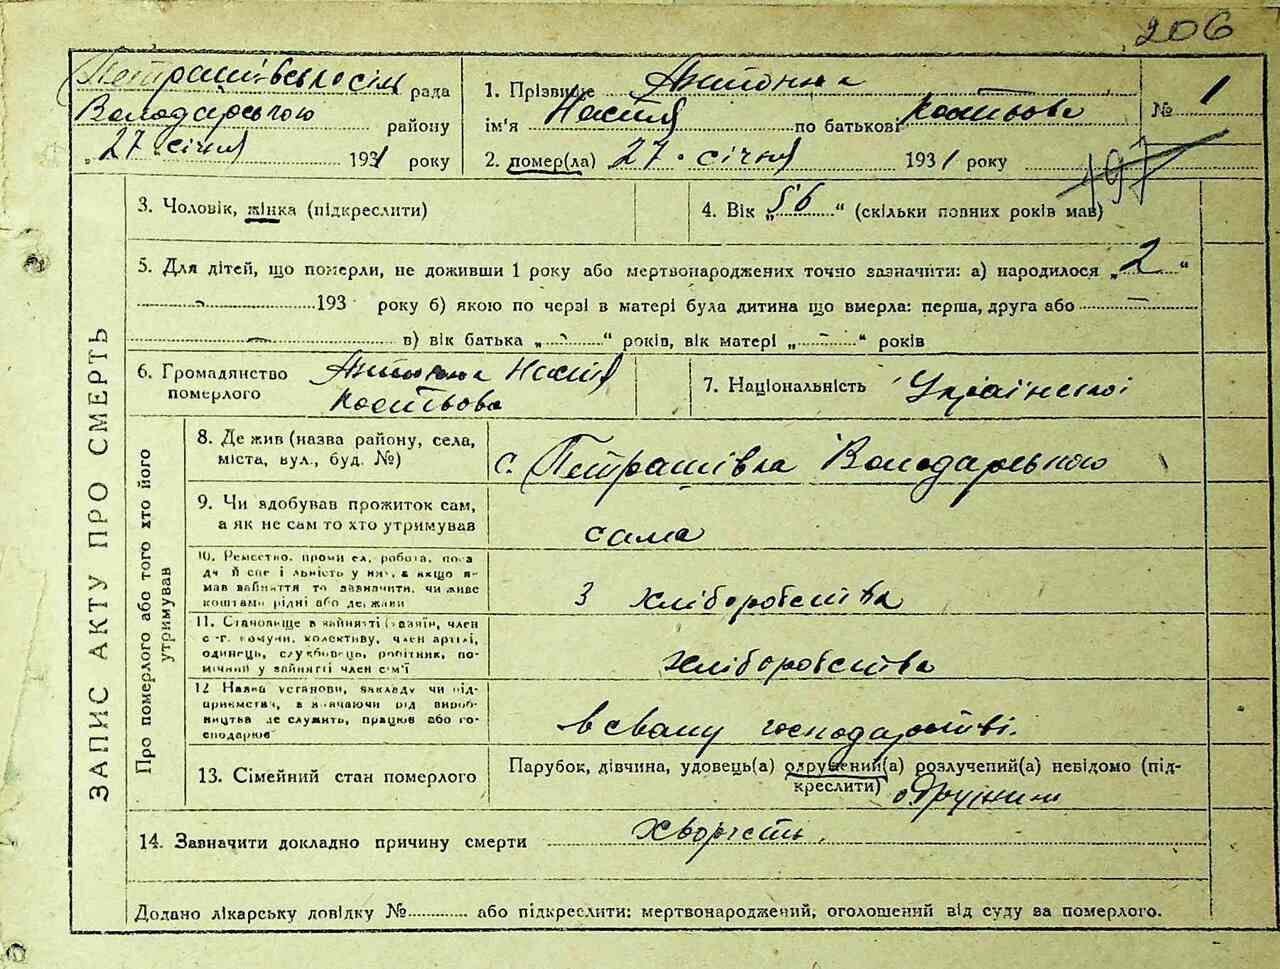 206
Петрашівською сіль рада
Володарського району
"27" січня 1931 року
1. Прізвище Антонюк
ім'я Настя по батькові Костьова
№ 1
2. помер(ла) 27 січня 1931 року
197
3. Чоловік, жінка (підкреслити)
4. Вік „56“ (скільки повних років мав)
5. Для дітей, що померли, не доживши 1 року або мертвонароджених точно зазначити: а) народилося „2“
193 року б) якою по черзі в матері була дитина що вмерла: перша, друга або —
в) вік батька „-“ років, вік матері „-“ років
6. Громадянство померлого Антонюк Настя
Костьова
7. Національність Української
ЗАПИС АКТУ ПРО СМЕРТЬ
Про померлого або того хто його утримував
8. Де жив (назва району, села,
міста, вул., буд. №)
с. Петрашівка Володарського
9. Чи здобував прожиток сам,
а як не сам то хто утримував
сама
10. Ремество, промисел, робота, поса
да й спеціальність у них, а якщо я-
мав зайняття то зазначити, чи живе
коштами рідні або держави
з хліборобства
11. Становище в зайнятті (хазяїн, член
с.-г. комуни, колективу, член артілі,
одинець, службовець, робітник, по-
мічний у зайнятті член сім'ї
хліборобства
12 Назва установи, закладу чи під-
приємства, в значаючи рід вироб-
ництва де служить, працює або го-
сподарює
в свому господарстві.
13. Сімейний стан померлого
Парубок, дівчина, удовець(а) одружений(а) розлучений(а) невідомо (під-
креслити) одружини
14. Зазначити докладно причину смерти хворість.
Додано лікарську довідку № або підкреслити: мертвонароджений, оголошений від суду за померлого.